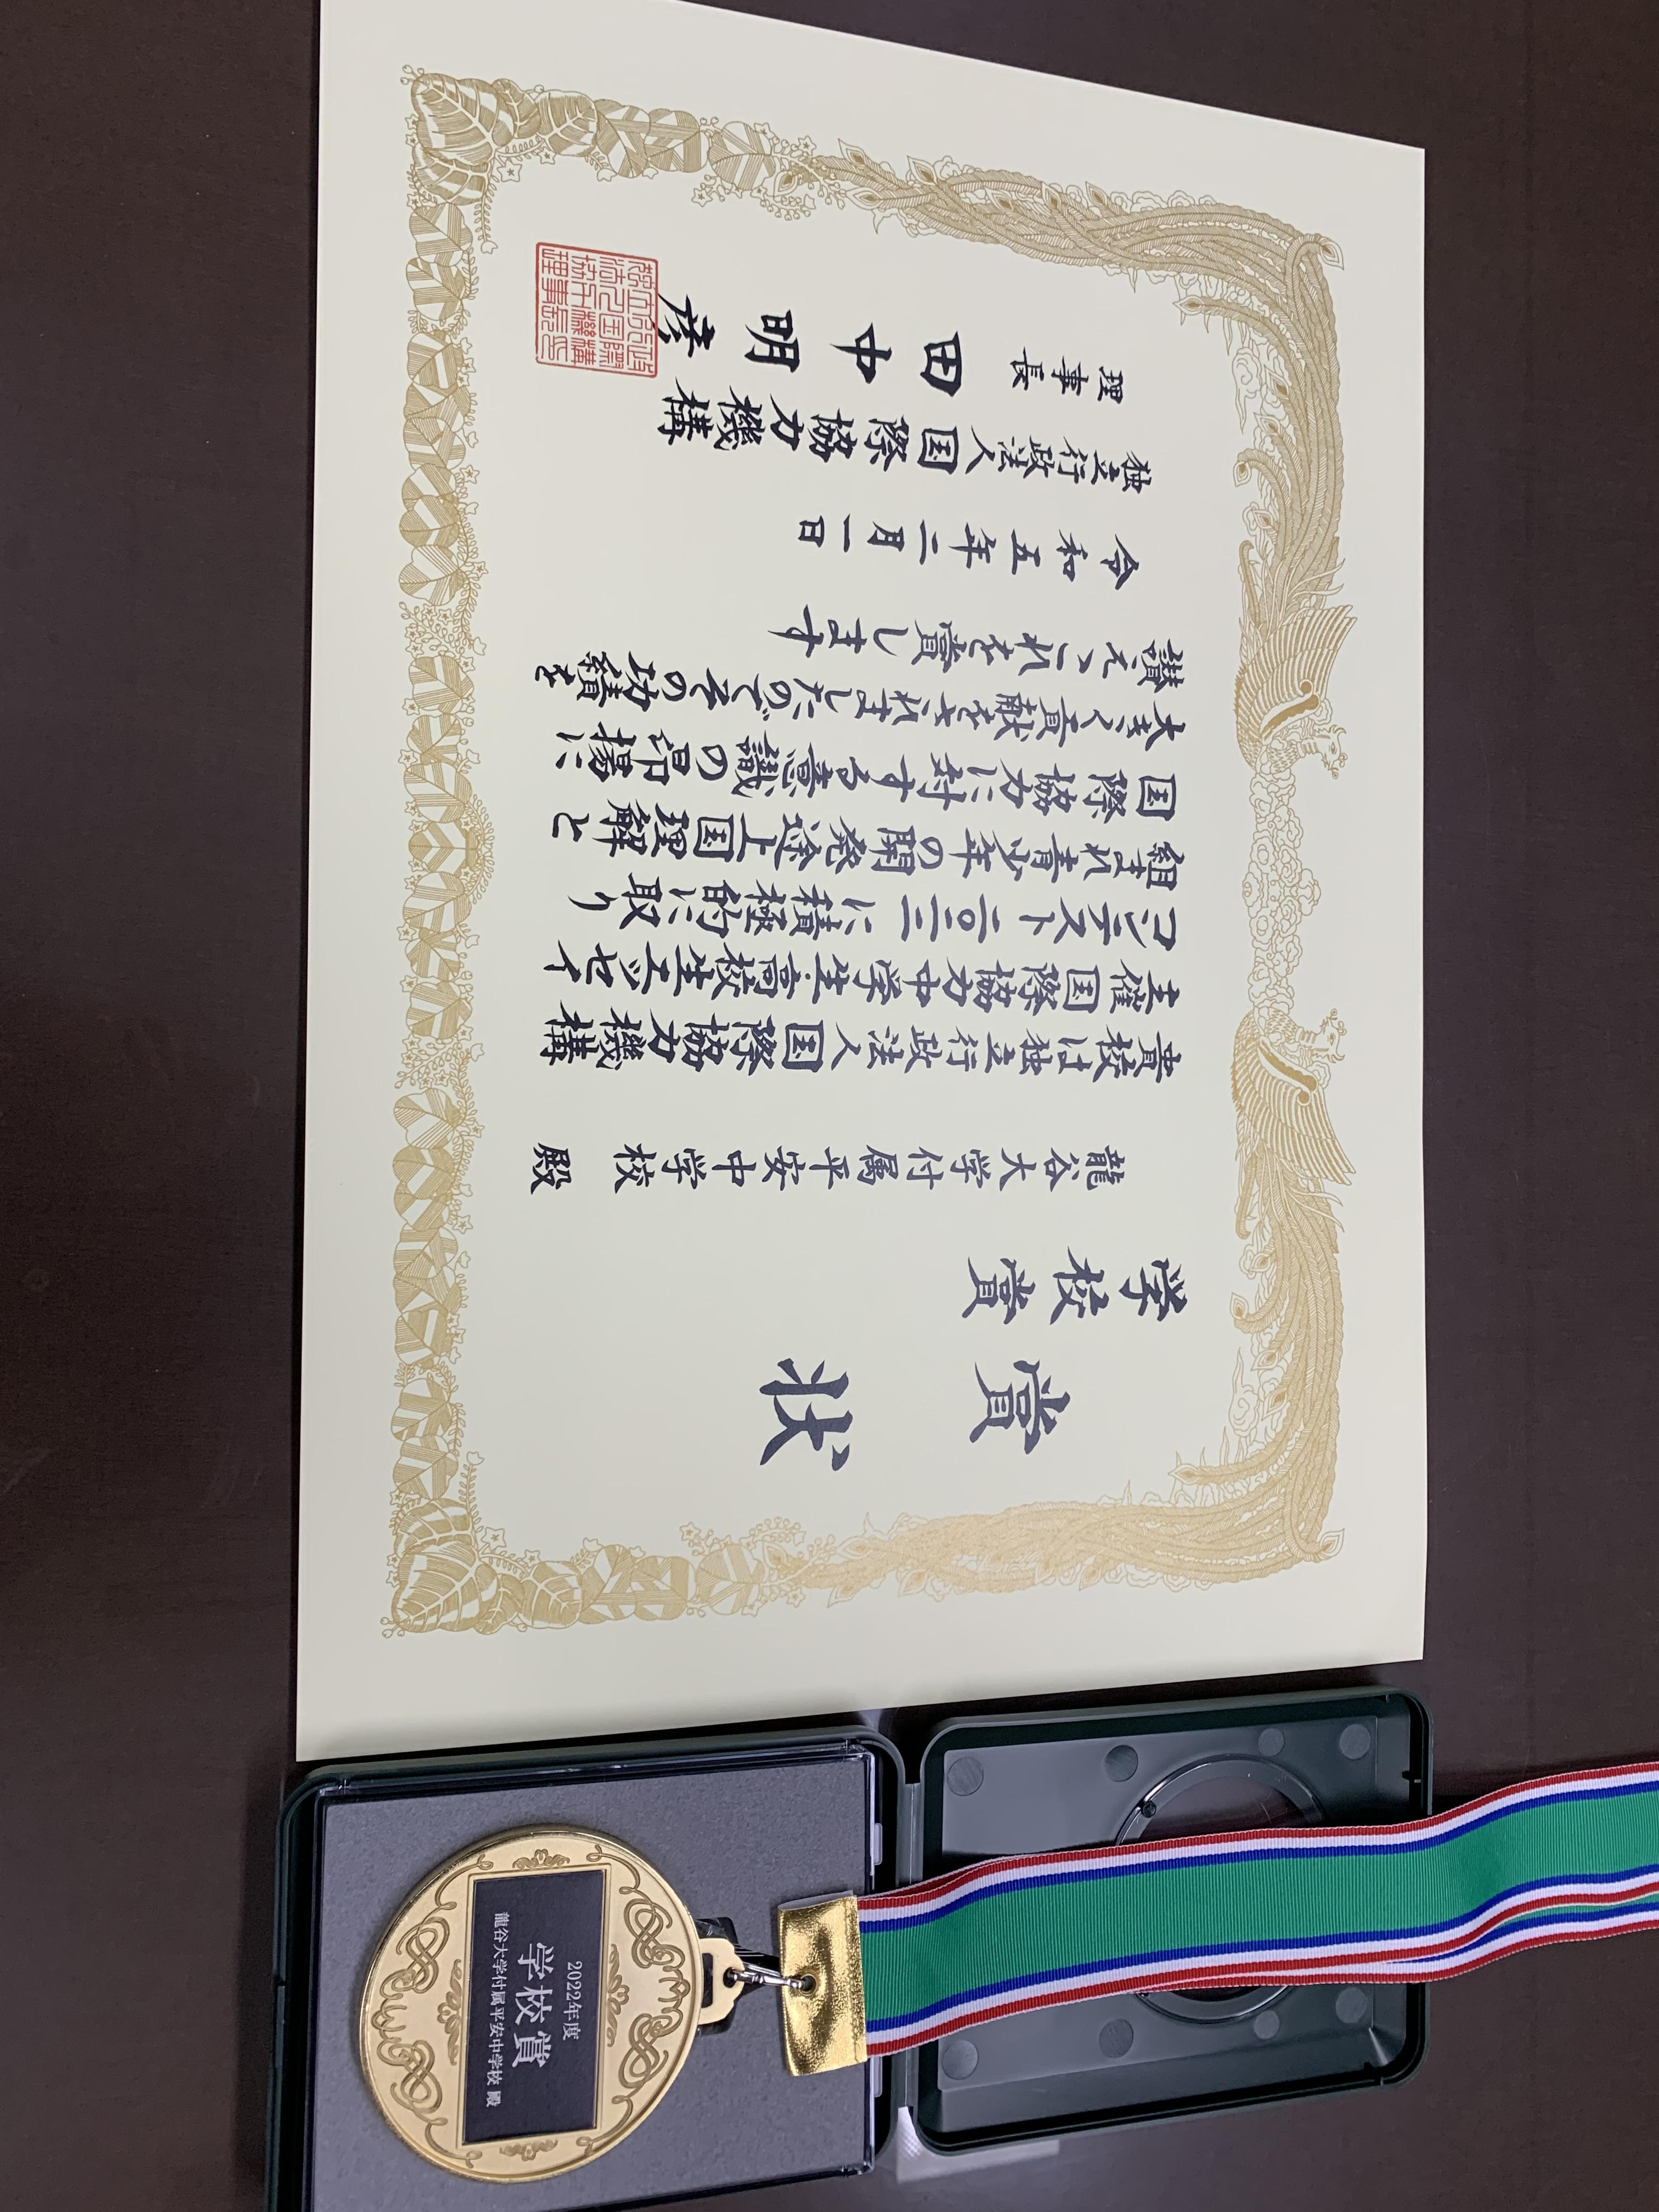 賞状
学校賞
龍谷大学付属平安中学校 殿
貴校は独立行政法人国際協力機構
主催国際協力中学生・高校生エッセイ
コンテスト二〇二二に積極的に取り
組まれ青少年の開発途上国理解と
国際協力に対する意識の昂揚に
大きく貢献をされましたのでその功績を
讃えここにこれを賞します
令和五年二月一日
独立行政法人国際協力機構
理事長 田中明彦
2022年度
学校賞
龍谷大学付属平安中学校 殿